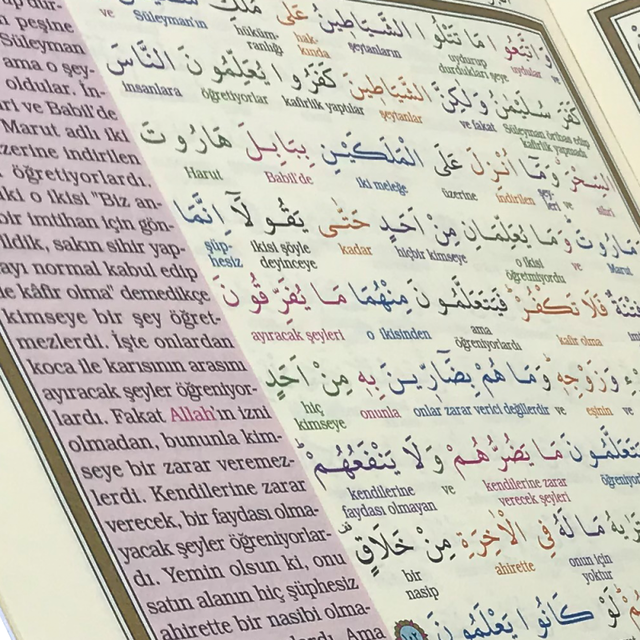 peşine
Süleyman
ama o şey-
oldular. İn-
ve Babil'de
Marut adlı iki
zerine indirilen
öğretiyorlardı.
iki o ikisi "Biz an-
bir imtihan için gön-
ildik, sakın sihir yap-
ayı normal kabul edip
kâfir olma" demedikçe
kimseye bir şey öğret-
mezlerdi. İşte onlardan
koca ile karısının arasını
ayıracak şeyler öğreniyor-
lardı. Fakat Allah'ın izni
olmadan, bununla kim-
seye bir zarar veremez-
lerdi. Kendilerine zarar
verecek, bir faydası olma-
yacak şeyler öğreniyorlar-
dı. Yemin olsun ki, onu
satın alanın hiç şüphesiz
ahirette bir nasibi olma-
وَاتَّبَعُوا مَا تَتْلُوا الشَّيَاطِينُ عَلٰى مُلْكِ
ve uydular uydurup durdukları şeye şeytanların hakkında hükümranlığı Süleyman'ın ve
كَفَرَ سُلَيْمٰنُ وَلٰكِنَّ الشَّيَاطِينَ كَفَرُوا يُعَلِّمُونَ النَّاسَ
Süleyman ve fakat şeytanlar kafirlik yaptılar öğretiyorlar insanlara
السِّحْرَ وَمَا اُنْزِلَ عَلَى الْمَلَكَيْنِ بِبَابِلَ هَارُوتَ
sihri ve şeyleri indirilen üzerine iki meleğe Babil'de Harut
مَارُوتَ وَمَا يُعَلِّمَانِ مِنْ اَحَدٍ حَتّٰى يَقُولَا اِنَّمَا
Marut ve o ikisi öğretmiyordu hiçbir kimseye kadar ikisi şöyle deyinceye şüphesiz
فِتْنَةٌ فَلَا تَكْفُرْ فَيَتَعَلَّمُونَ مِنْهُمَا مَا يُفَرِّقُونَ
kafir olma ama öğreniyorlardı o ikisinden ayıracak şeyleri
وَزَوْجِهِ وَمَا هُمْ بِضَارِّينَ بِهِ مِنْ اَحَدٍ
ve eşinin ve onlar zarar verici değillerdir onunla hiç kimseye
مَا يَضُرُّهُمْ وَلَا يَنْفَعُهُمْ
kendilerine zarar verecek şeyleri ve kendilerine faydası olmayan
مَا لَهُ فِي الْاٰخِرَةِ مِنْ خَلَاقٍ
onun için yoktur ahirette bir nasip
لَوْ كَانُوا يَعْلَمُونَ